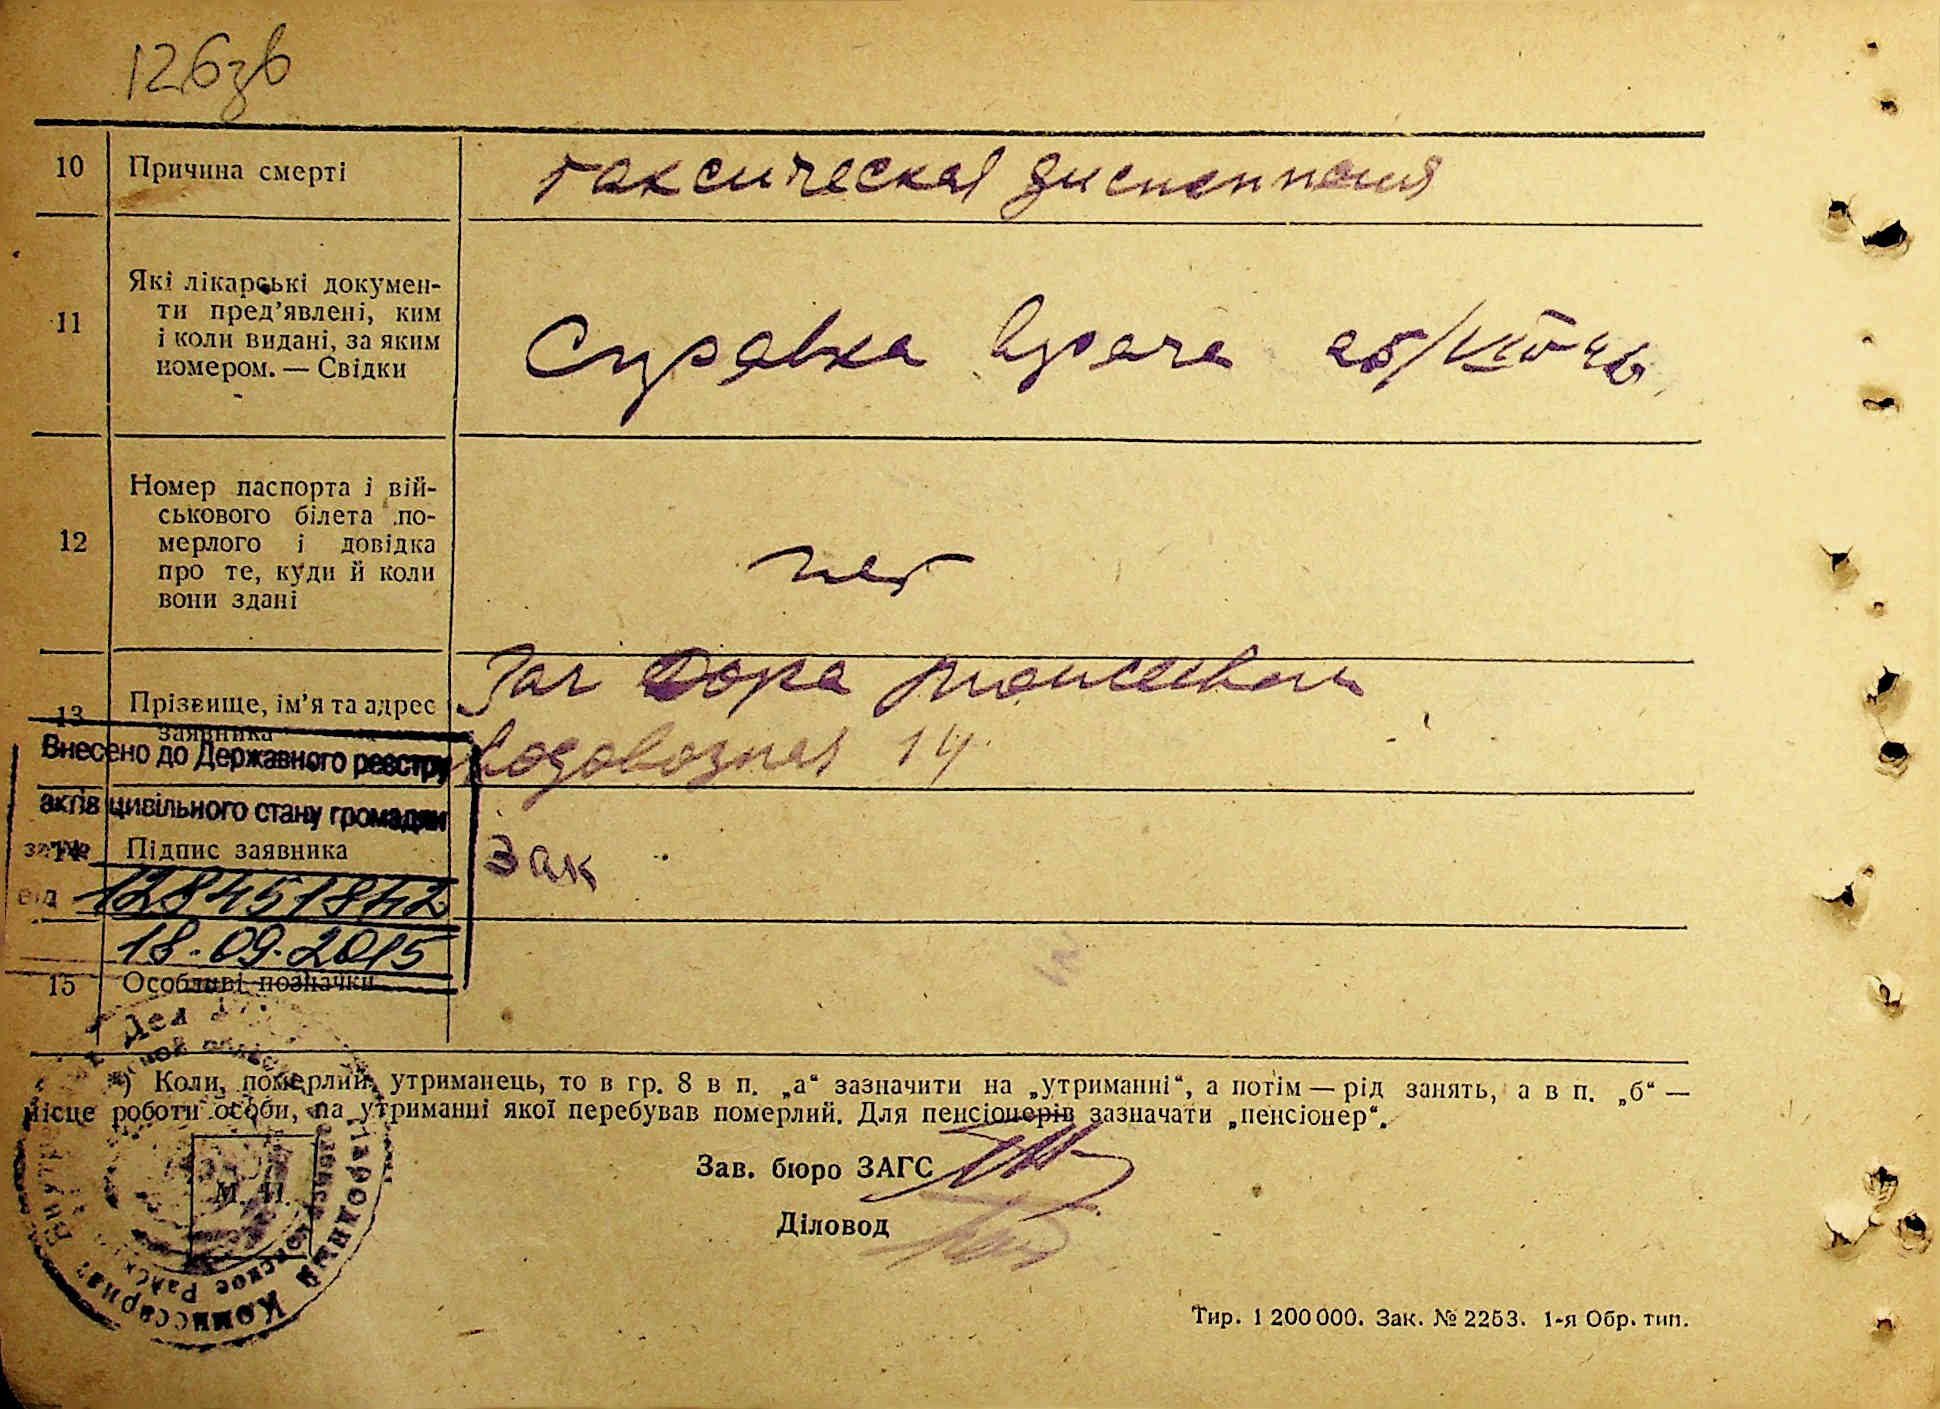 126зв
10 Причина смерті таксическая диспепсия
11 Які лікарські докумен-
ти пред’явлені, ким
і коли видані, за яким
номером. — Свідки
Справка врача 25/VIII-46
12 Номер паспорта і вій-
ськового білета по-
мерлого і довідка
про те, куди й коли
вони здані
нет
13 Прізвище, ім’я та адрес
заявника
Зак Дора Моисеевна
Водовозная 14
Внесено до Державного реєстру
актів цивільного стану громадян
за №
14 Підпис заявника Зак
від 128451842
18.09.2015
15 Особливі позначки
*) Коли, померлий, утриманець, то в гр. 8 в п. „а“ зазначити на „утриманні“, а потім — рід занять, а в п. „б“ —
місце роботи особи, на утриманні якої перебував померлий. Для пенсіонерів зазначати „пенсіонер“.
Народный Комиссариат Внутренних Дел
М. П.
Зав. бюро ЗАГС
Діловод
Тир. 1 200 000. Зак. № 2253. 1-я Обр. тип.